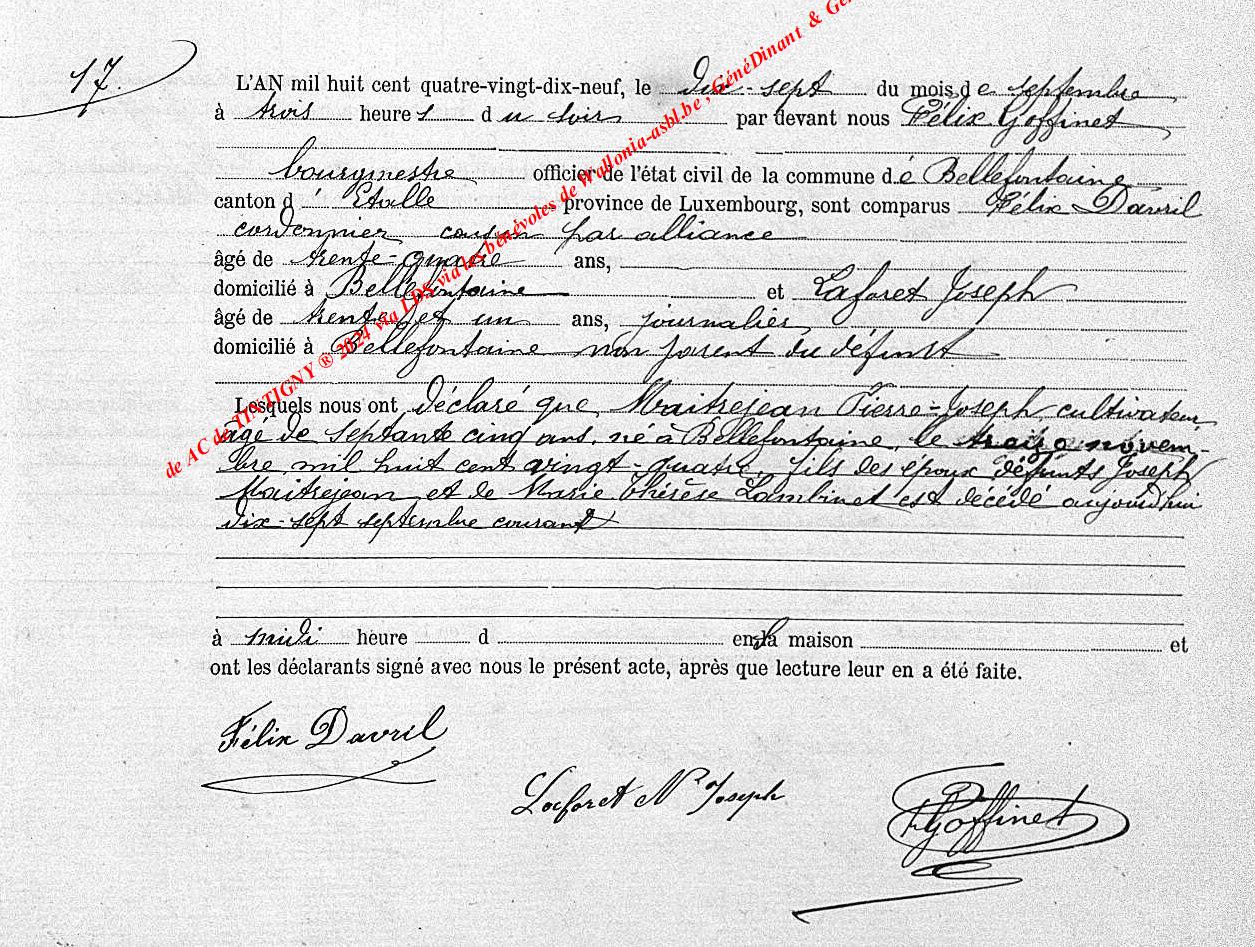 17.
L'AN mil huit cent quatre-vingt-dix-neuf, le dix-sept du mois de septembre
à trois heures du soir par devant nous Félix Goffinet
bourgmestre officier de l'état civil de la commune de Bellefontaine
canton d'Etalle province de Luxembourg, sont comparus Félix Davril
cordonnier cousin par alliance
âgé de trente-quatre ans,
domicilié à Bellefontaine et Laforet Joseph
âgé de trente et un ans, journalier
domicilié à Bellefontaine non parent du défunt
Lesquels nous ont déclaré que Maitrejean Pierre-Joseph cultivateur,
âgé de septante cinq ans, né à Bellefontaine, le novem-
bre mil huit cent vingt-quatre, fils des époux défunts Joseph
Maitrejean et de Marie Thérèse Lambinet est décédé aujourd'hui
dix-sept septembre courant
à midi heure d en sa maison et
ont les déclarants signé avec nous le présent acte, après que lecture leur en a été faite.
Félix Davril
Laforet N Joseph
FGoffinet
de AC de TINTIGNY ® 2024 via LDS via les bénévoles de Wallonia-asbl.be , GénéDinant & Gé